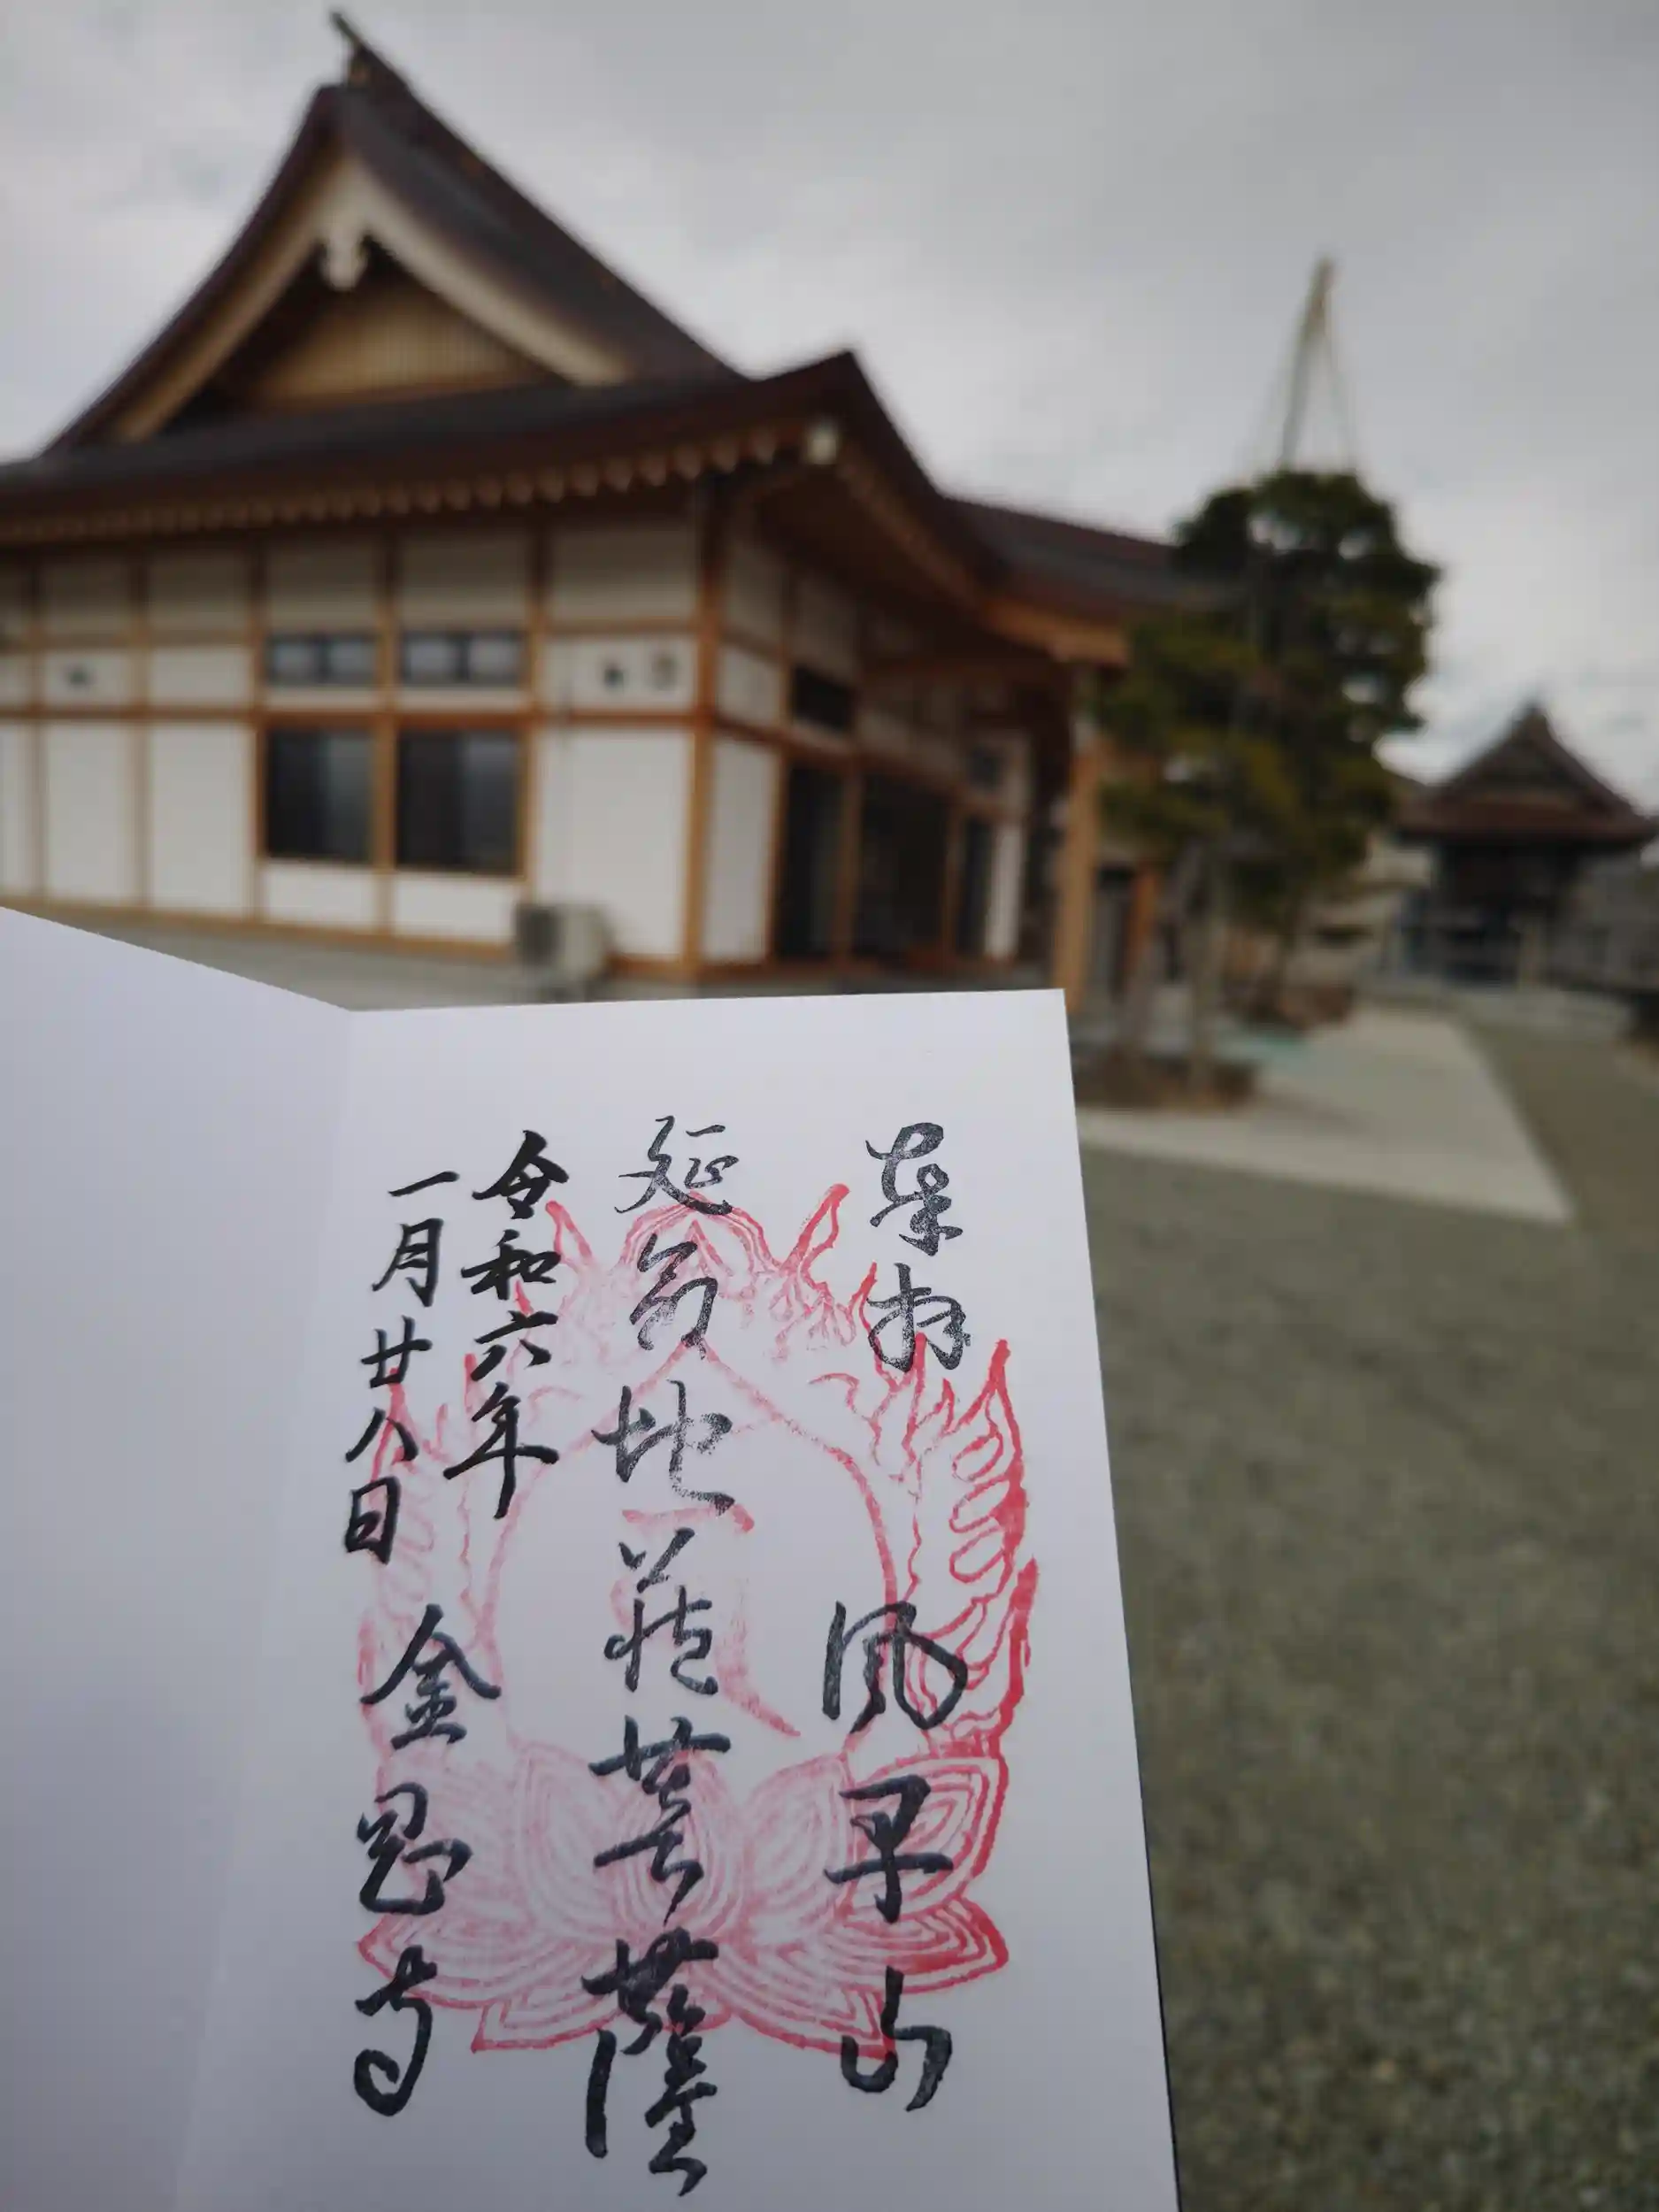 奉拝 風早山
延命地蔵菩薩
令和六年
一月廿八日 金恩寺